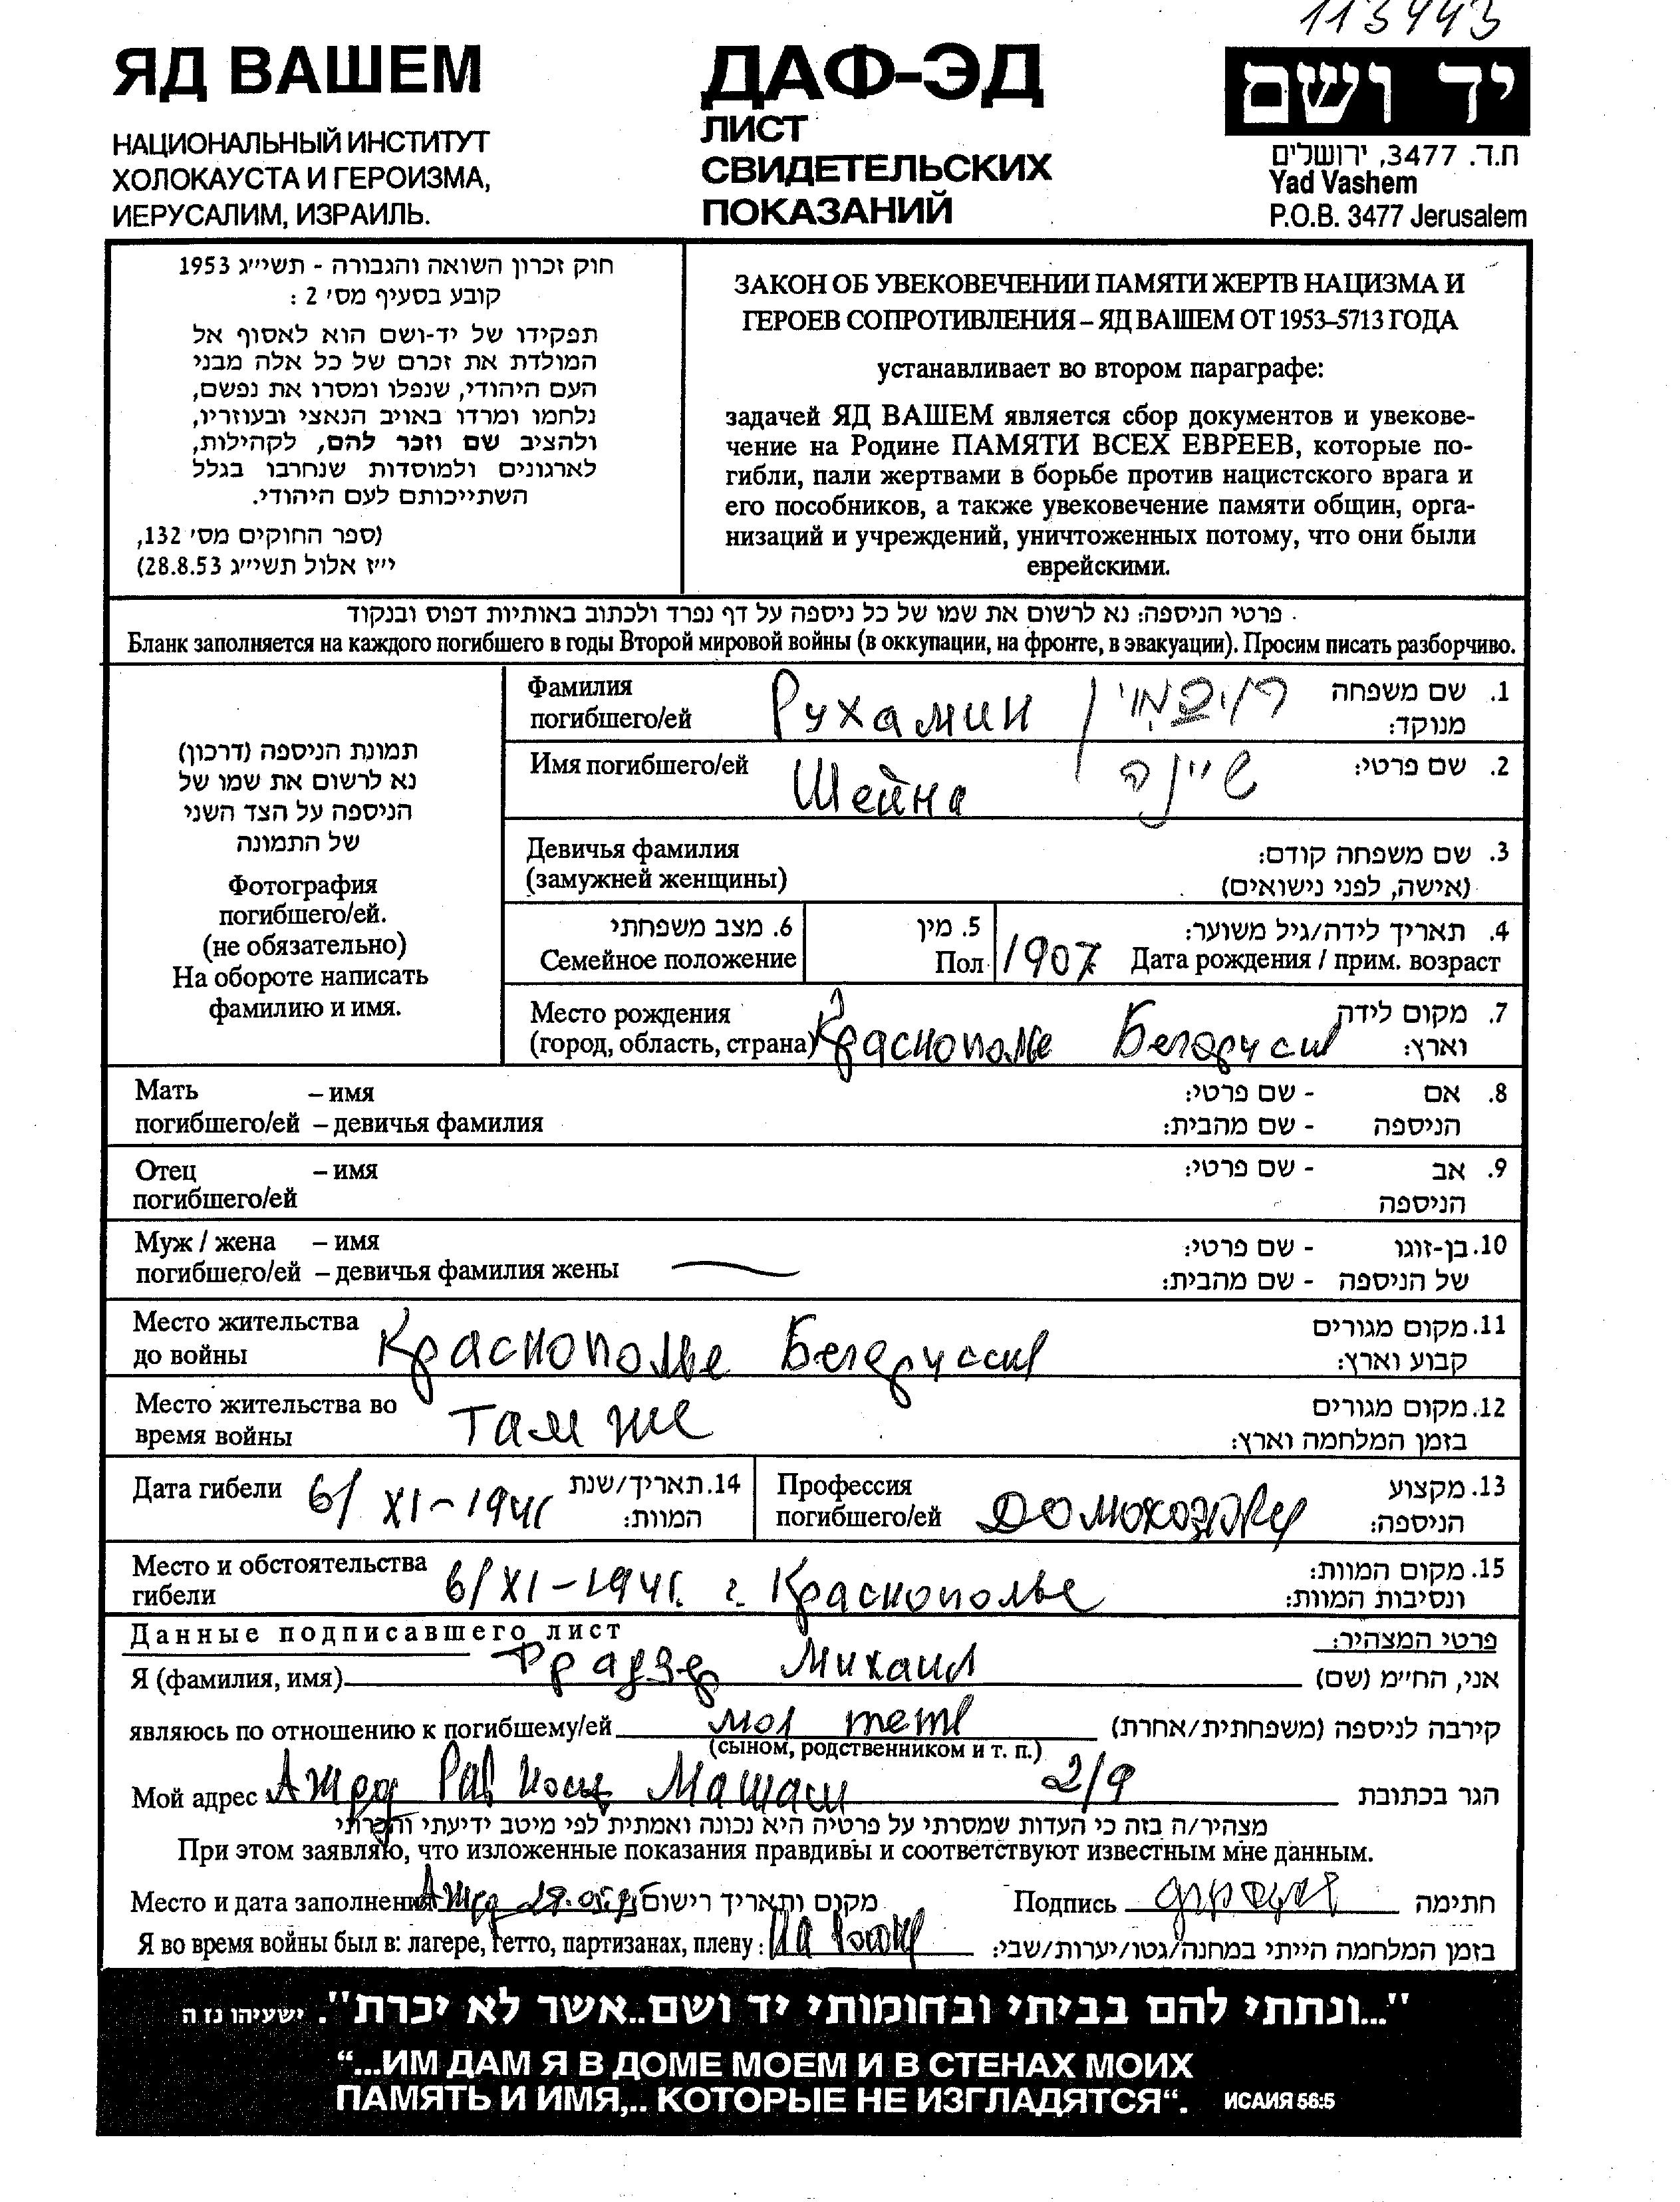 113443
ЯД ВАШЕМ
НАЦИОНАЛЬНЫЙ ИНСТИТУТ
ХОЛОКАУСТА И ГЕРОИЗМА,
ИЕРУСАЛИМ, ИЗРАИЛЬ.
ДАФ-ЭД
ЛИСТ
СВИДЕТЕЛЬСКИХ
ПОКАЗАНИЙ
יד ושם
ת.ד. 3477, ירושלים
Yad Vashem
P.O.B. 3477 Jerusalem
חוק זכרון השואה והגבורה - תשי״ג 1953
קובע בסעיף מס׳ 2 :
תפקידו של יד-ושם הוא לאסוף אל
המולדת את זכרם של כל אלה מבני
העם היהודי, שנפלו ומסרו את נפשם,
נלחמו ומרדו באויב הנאצי ובעוזריו,
ולהציב שם וזכר להם, לקהילות,
לארגונים ולמוסדות שנחרבו בגלל
השתייכותם לעם היהודי.
(ספר החוקים מס׳ 132,
י״ז אלול תשי״ג 28.8.53)
ЗАКОН ОБ УВЕКОВЕЧЕНИИ ПАМЯТИ ЖЕРТВ НАЦИЗМА И
ГЕРОЕВ СОПРОТИВЛЕНИЯ – ЯД ВАШЕМ ОТ 1953–5713 ГОДА
устанавливает во втором параграфе:
задачей ЯД ВАШЕМ является сбор документов и увекове-
чение на Родине ПАМЯТИ ВСЕХ ЕВРЕЕВ, которые по-
гибли, пали жертвами в борьбе против нацистского врага и
его пособников, а также увековечение памяти общин, орга-
низаций и учреждений, уничтоженных потому, что они были
еврейскими.
פרטי הניספה: נא לרשום את שמו של כל ניספה על דף נפרד ולכתוב באותיות דפוס ובנקוד
Бланк заполняется на каждого погибшего в годы Второй мировой войны (в оккупации, на фронте, в эвакуации). Просим писать разборчиво.
תמונת הניספה (דרכון)
נא לרשום את שמו של
הניספה על הצד השני
של התמונה
Фотография
погибшего/ей.
(не обязательно)
На обороте написать
фамилию и имя.
Фамилия
погибшего/ей Рухамин
1. שם משפחה
מנוקד:
Имя погибшего/ей Шейна שיינה 2. שם פרטי:
Девичья фамилия
(замужней женщины)
3. שם משפחה קודם:
(אישה, לפני נישואים)
6. מצב משפחתי
Семейное положение
5. מין
Пол
1907
4. תאריך לידה/גיל משוער:
Дата рождения / прим. возраст
Место рождения
(город, область, страна) Краснополье Белоруси
7. מקום לידה
וארץ:
Мать – имя
погибшего/ей – девичья фамилия
8. אם - שם פרטי:
הניספה - שם מהבית:
Отец – имя
погибшего/ей
9. אב - שם פרטי:
הניספה
Муж / жена – имя
погибшего/ей – девичья фамилия жены
10. בן-זוגו - שם פרטי:
של הניספה - שם מהבית:
Место жительства
до войны Краснополье Белоруссия
11. מקום מגורים
קבוע וארץ:
Место жительства во
время войны Там же
12. מקום מגורים
בזמן המלחמה וארץ:
Дата гибели 6/XI–1941
14. תאריך/שנת
המוות:
Профессия
погибшего/ей Домохозяйка
13. מקצוע
הניספה:
Место и обстоятельства
гибели 6/XI–1941. г. Краснополье
15. מקום המוות:
ונסיבות המוות:
Данные подписавшего лист
פרטי המצהיר:
Я (фамилия, имя) Фрадзер Михаил אני, החי״מ (שם)
являюсь по отношению к погибшему/ей моя тетя קירבה לניספה (משפחתית/אחרת)
(сыном, родственником и т. п.)
Мой адрес Ашдод Рав 2/9 הגר בכתובת
מצהיר/ה בזה כי העדות שמסרתי על פרטיה היא נכונה ואמתית לפי מיטב ידיעתי והכרתי
При этом заявляю, что изложенные показания правдивы и соответствуют известным мне данным.
Место и дата заполнения מקום ותאריך רישום Подпись חתימה
Я во время войны был в: лагере, гетто, партизанах, плену: בזמן המלחמה הייתי במחנה/גטו/יערות/שבי:
"...ונתתי להם בביתי ובחומותי יד ושם..אשר לא יכרת". ישעיהו נז ה
“...ИМ ДАМ Я В ДОМЕ МОЕМ И В СТЕНАХ МОИХ
ПАМЯТЬ И ИМЯ,.. КОТОРЫЕ НЕ ИЗГЛАДЯТСЯ“. ИСАИЯ 56:5